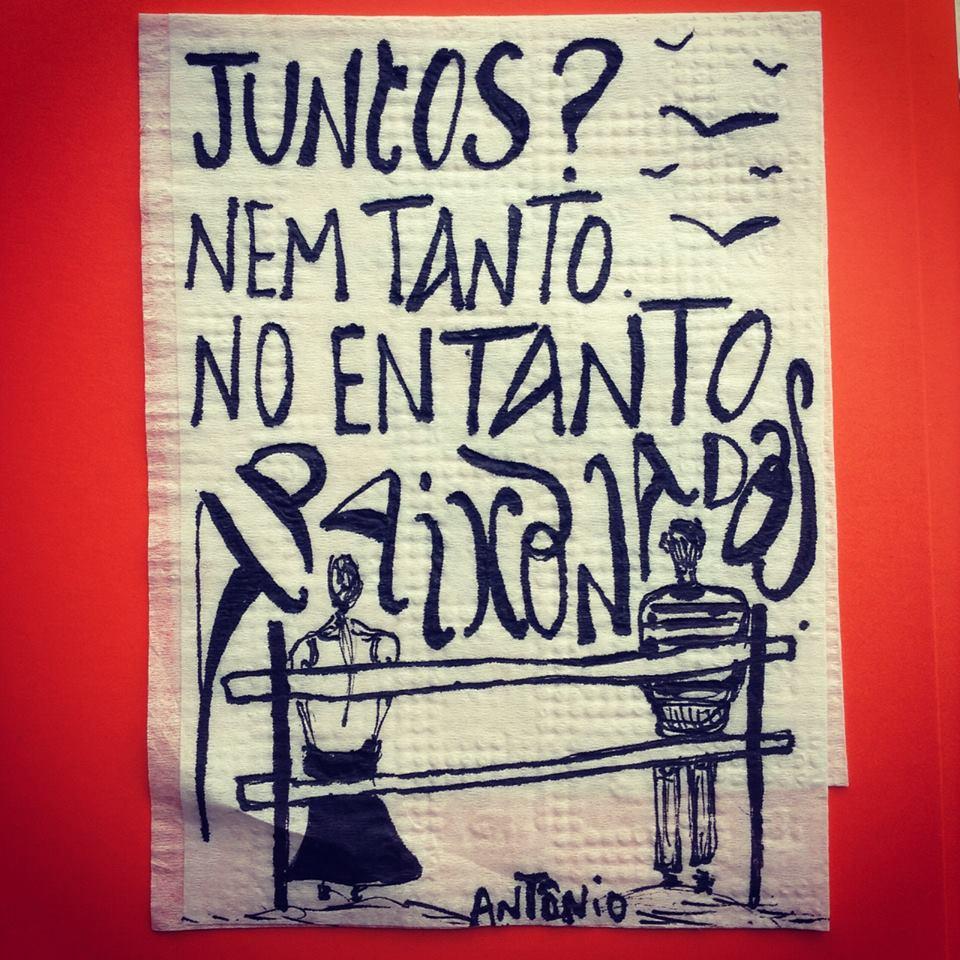 JUNtOS?
NEM TANTO.
NO ENTANTO,
APAIXONADOS.
ANTÔNIO